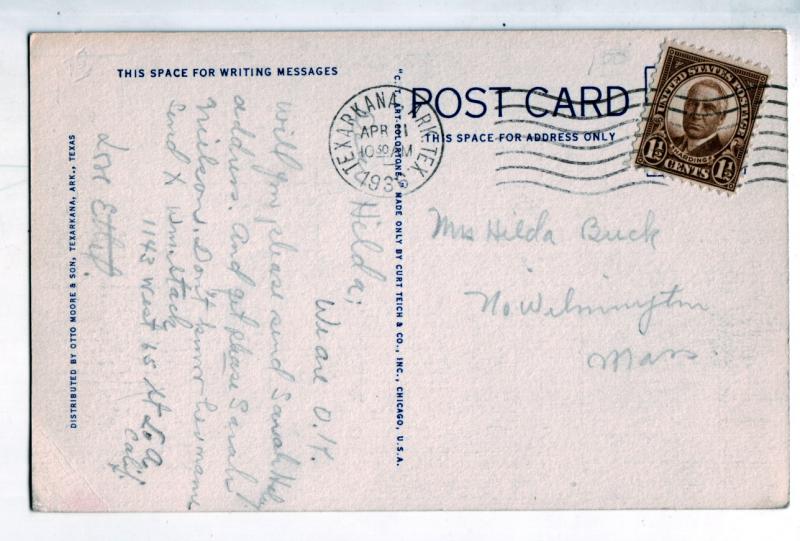 THIS SPACE FOR WRITING MESSAGES
POST CARD
THIS SPACE FOR ADDRESS ONLY
TEXARKANA, ARK.-TEX.
APR 11
10 30 AM
UNITED STATES POSTAGE
HARDING
1½ CENTS 1½
Mrs Hilda Buck
No Wilmington
Mass.
Hilda;
We are O.K.
Will you please send Sarah
address. And get please Sarah
Neilson. Don't know
Send
1142 West 65 St L.A.
Calif.
Love
"C. T. ART-COLORTONE," MADE ONLY BY CURT TEICH & CO., INC., CHICAGO, U.S.A.
DISTRIBUTED BY OTTO MOORE & SON, TEXARKANA, ARK., TEXAS